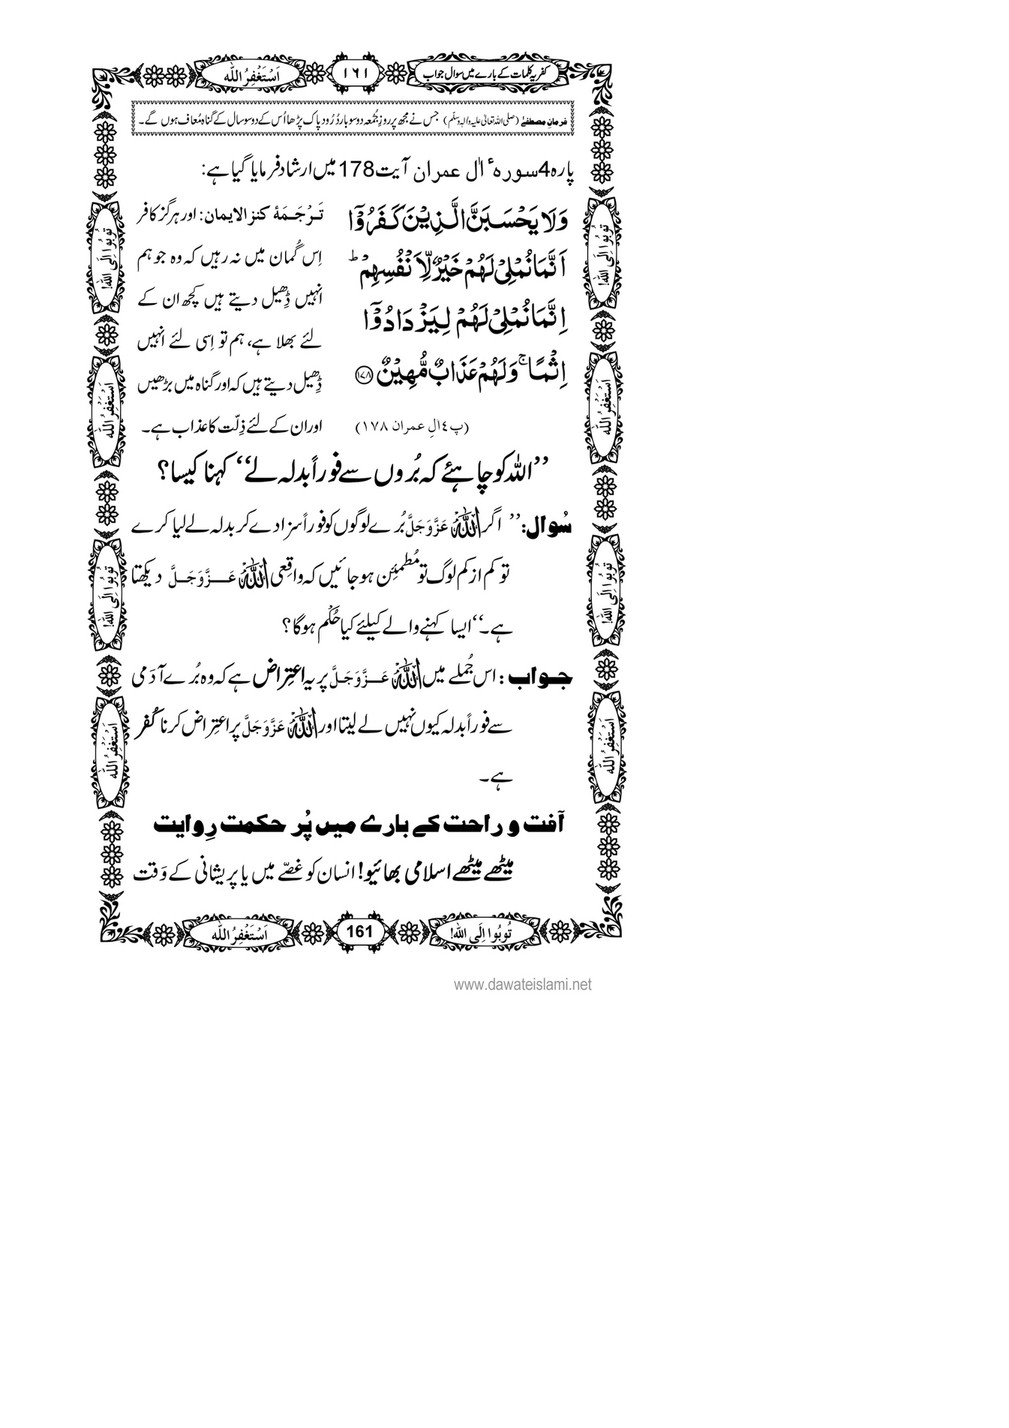 کفریہ کلمات کے بارے میں سوال جواب
۱۶۱
اَسْتَغْفِرُ اللّٰه
فرمانِ مصطفےٰ (صلی اللہ تعالیٰ علیہ واٰلہٖ وسلم) جس نے مجھ پر روزِ جُمُعہ دو سو بار دُرُودِ پاک پڑھا اُس کے دو سو سال کے گناہ مُعاف ہوں گے۔
پارہ 4 سورہ ٔ اٰل عمران آیت 178 میں ارشاد فرمایا گیا ہے:
وَلَا یَحْسَبَنَّ الَّذِیْنَ كَفَرُوْۤا
اَنَّمَا نُمْلِیْ لَهُمْ خَیْرٌ لِّاَنْفُسِهِمْ ؕ
اِنَّمَا نُمْلِیْ لَهُمْ لِیَزْدَادُوْۤا
اِثْمًا ۚ وَلَهُمْ عَذَابٌ مُّهِیْنٌ ﴿۱۷۸﴾
(پ ٤ اٰلِ عمران ١٧٨)
تَرْجَمَۂ کنز الایمان: اور ہرگز کافر
اِس گُمان میں نہ رہیں کہ وہ جو ہم
انہیں ڈِھیل دیتے ہیں کچھ ان کے
لئے بھلا ہے، ہم تو اِسی لئے انہیں
ڈِھیل دیتے ہیں کہ اور گناہ میں بڑھیں
اور ان کے لئے ذِلّت کا عذاب ہے۔
’’اللہ کو چاہئے کہ بُروں سے فوراً بدلہ لے‘‘ کہنا کیسا؟
سُوال: ’’ اگر اللہ عَزَّوَجَلَّ بُرے لوگوں کو فوراً سزا دے کر بدلہ لے لیا کرے
تو کم از کم لوگ تو مُطْمَئِن ہو جائیں کہ واقِعی اللہ عَزَّوَجَلَّ دیکھتا
ہے۔‘‘ ایسا کہنے والے کیلئے کیا حُکْم ہوگا؟
جواب: اس جُملے میں اللہ عَزَّوَجَلَّ پر یہ اعتِراض ہے کہ وہ بُرے آدَمی
سے فوراً بدلہ کیوں نہیں لے لیتا اور اللہ عَزَّوَجَلَّ پر اعتِراض کرنا کُفر
ہے۔
آفت و راحت کے بارے میں پُر حکمت رِوایت
میٹھے میٹھے اسلامی بھائیو! انسان کو غصّے میں یا پریشانی کے وَقت
تُوبُوا اِلَی اللّٰه!
161
اَسْتَغْفِرُ اللّٰه
تُوبُوا اِلَی اللّٰه!
اَسْتَغْفِرُ اللّٰه
تُوبُوا اِلَی اللّٰه!
اَسْتَغْفِرُ اللّٰه
تُوبُوا اِلَی اللّٰه!
اَسْتَغْفِرُ اللّٰه
تُوبُوا اِلَی اللّٰه!
اَسْتَغْفِرُ اللّٰه
www.dawateislami.net